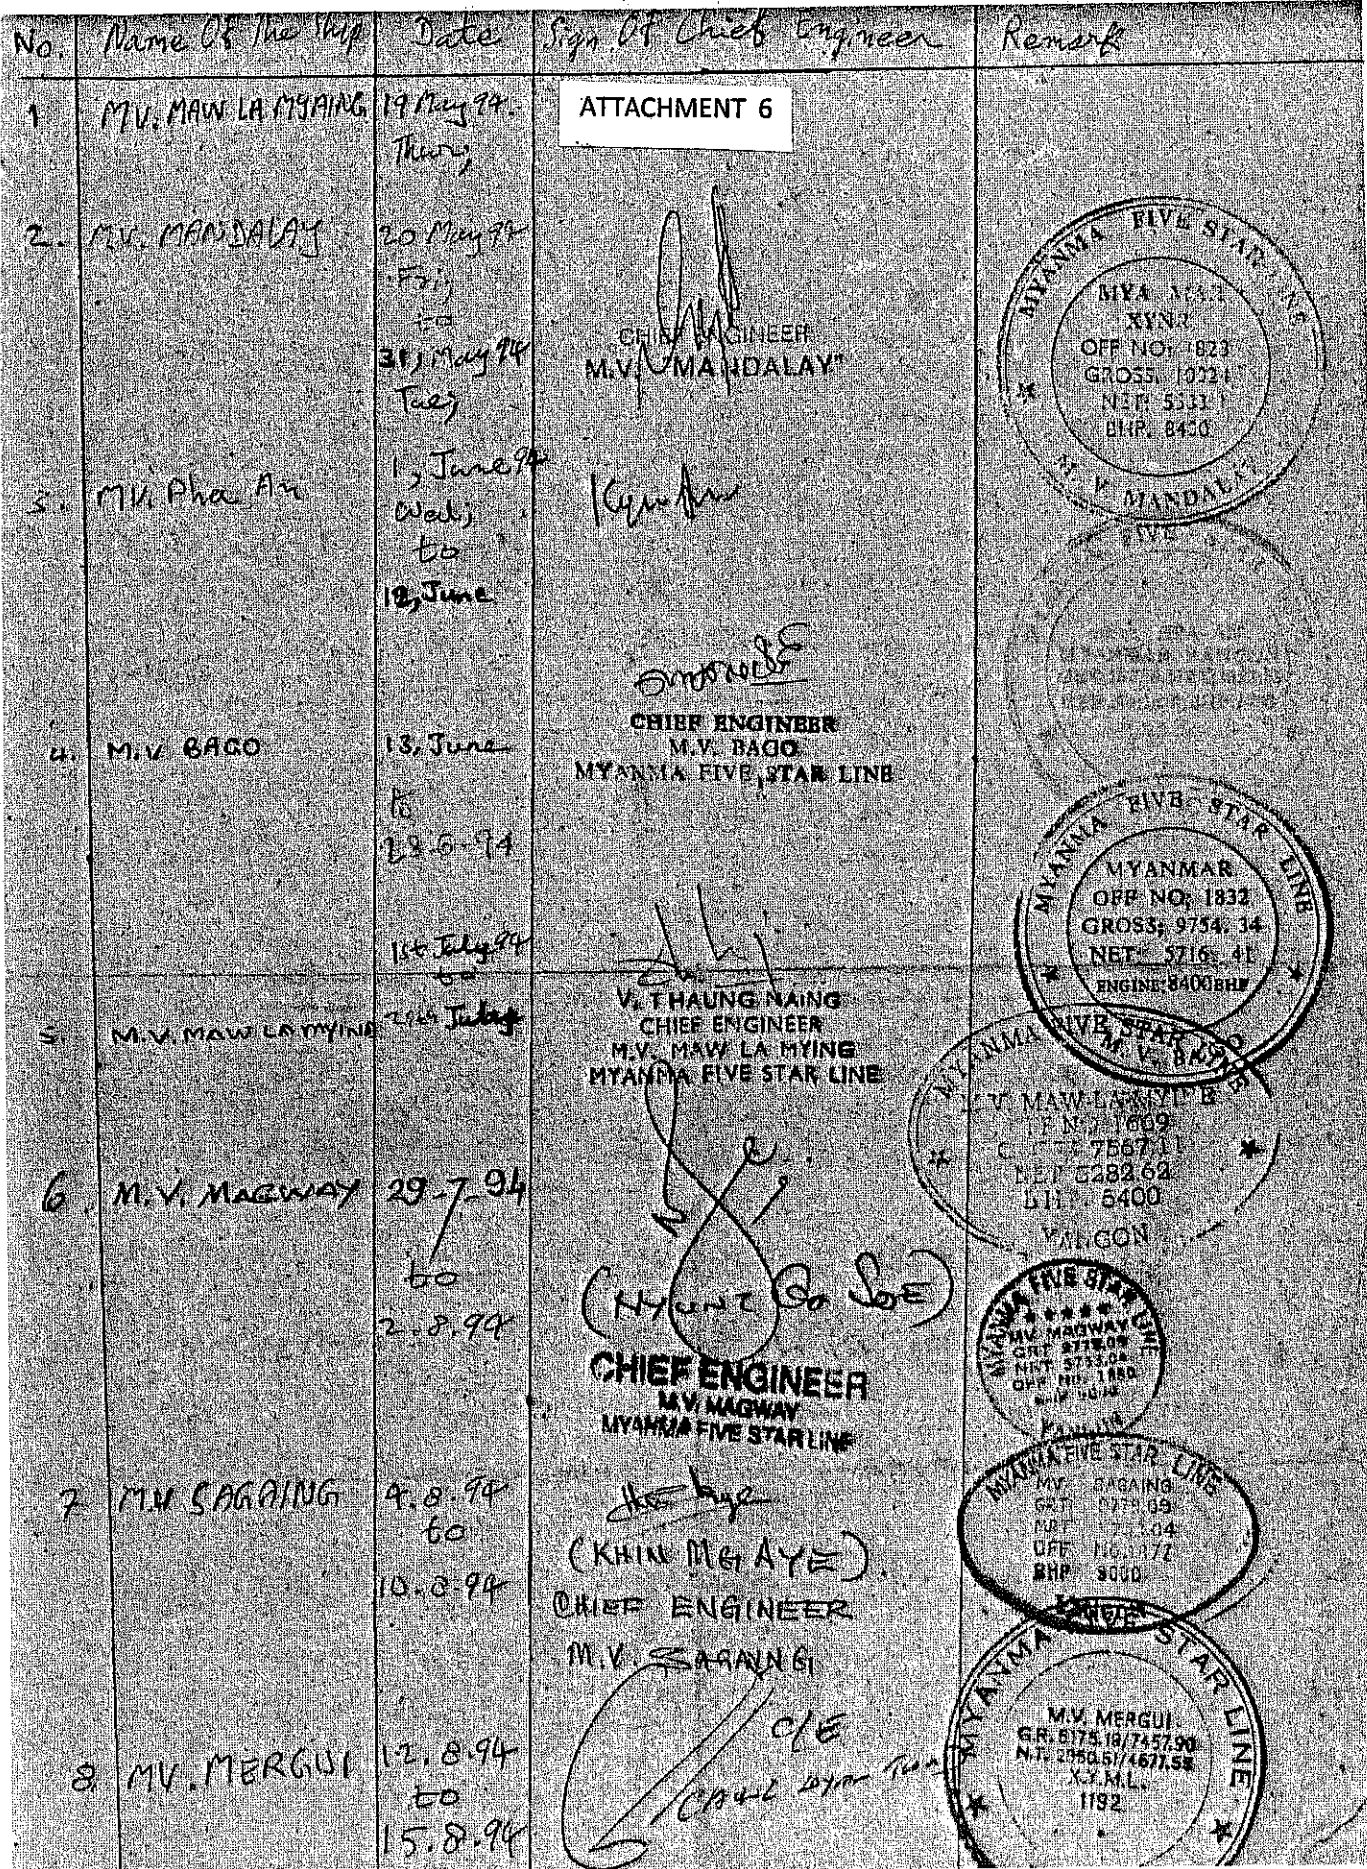 No. Name Of The Ship Date Sign Of Chief Engineer Remark
ATTACHMENT 6
1 M.V. MAW LA MYAING 19 May 94.
Thur;
2. M.V. MANDALAY 20 May 94
Fri;
to
31, May 94
Tue;
CHIEF ENGINEER
M.V. "MANDALAY"
MYANMA FIVE STAR LINE
MYANMAR
OFF NO; 1823
NET; 5333
BHP. 8400
M. V MANDALAY
MV. Pha An
1, June 94
Wed;
to
12, June
FIVE
4. M.V BAGO 13, June
to
CHIEF ENGINEER
M.V. BAGO
MYANMA FIVE STAR LINE
MYANMA FIVE STAR LINE
MYANMAR
OFF NO; 1832
GROSS; 9754. 34
NET; 5716. 41
ENGINE; 8400 BHP
M. V. BAGO
5. M.V. MAW LA MYINE
1st July 94
to
July
V. THAUNG NAING
CHIEF ENGINEER
M.V. MAW LA MYING
MYANMA FIVE STAR LINE
MYANMA FIVE STAR LINE
V. MAW-LA-MYINE
1609
7567.11
NET 5282.62
6400
YANGON
6. M.V. MAGWAY 29-7-94
to
2.8.94
(NYUNT Soe)
CHIEF ENGINEER
M.V. MAGWAY
MYANMA FIVE STAR LINE
MYANMA FIVE STAR LINE
MV. MAGWAY
7 M.V SAGAING 4.8.94
to
10.8.94
(KHIN MG AYE)
CHIEF ENGINEER
M.V. SAGAING
MYANMA FIVE STAR LINE
MV. SAGAING
GRT
OFF
BHP 8000
8. MV. MERGUI 12.8.94
to
15.8.94
C/E
MYANMA FIVE STAR LINE
M.V. MERGUI.
G.R. 6175.18/7457.90
N.T. 2950.51/4677.58
X.Y.M.L.
1192